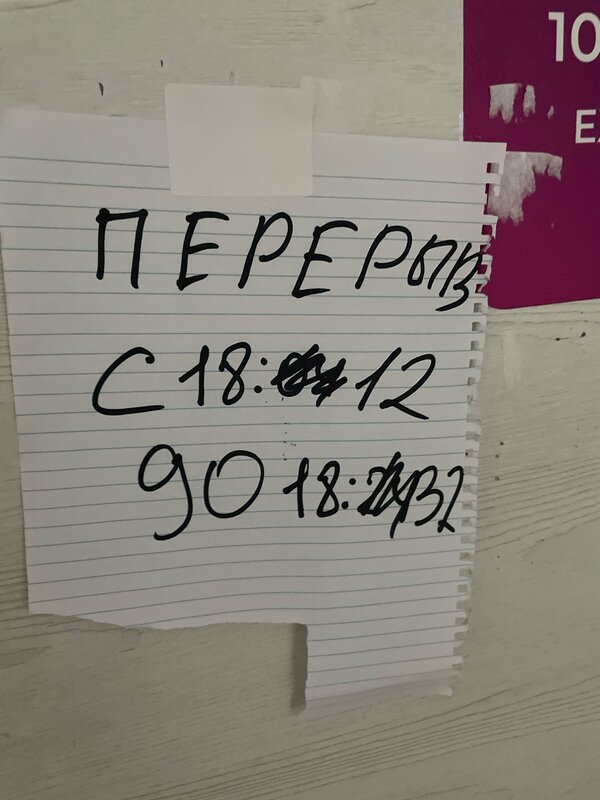 10
ПЕРЕРЫВ
С 18:12
до 18:32